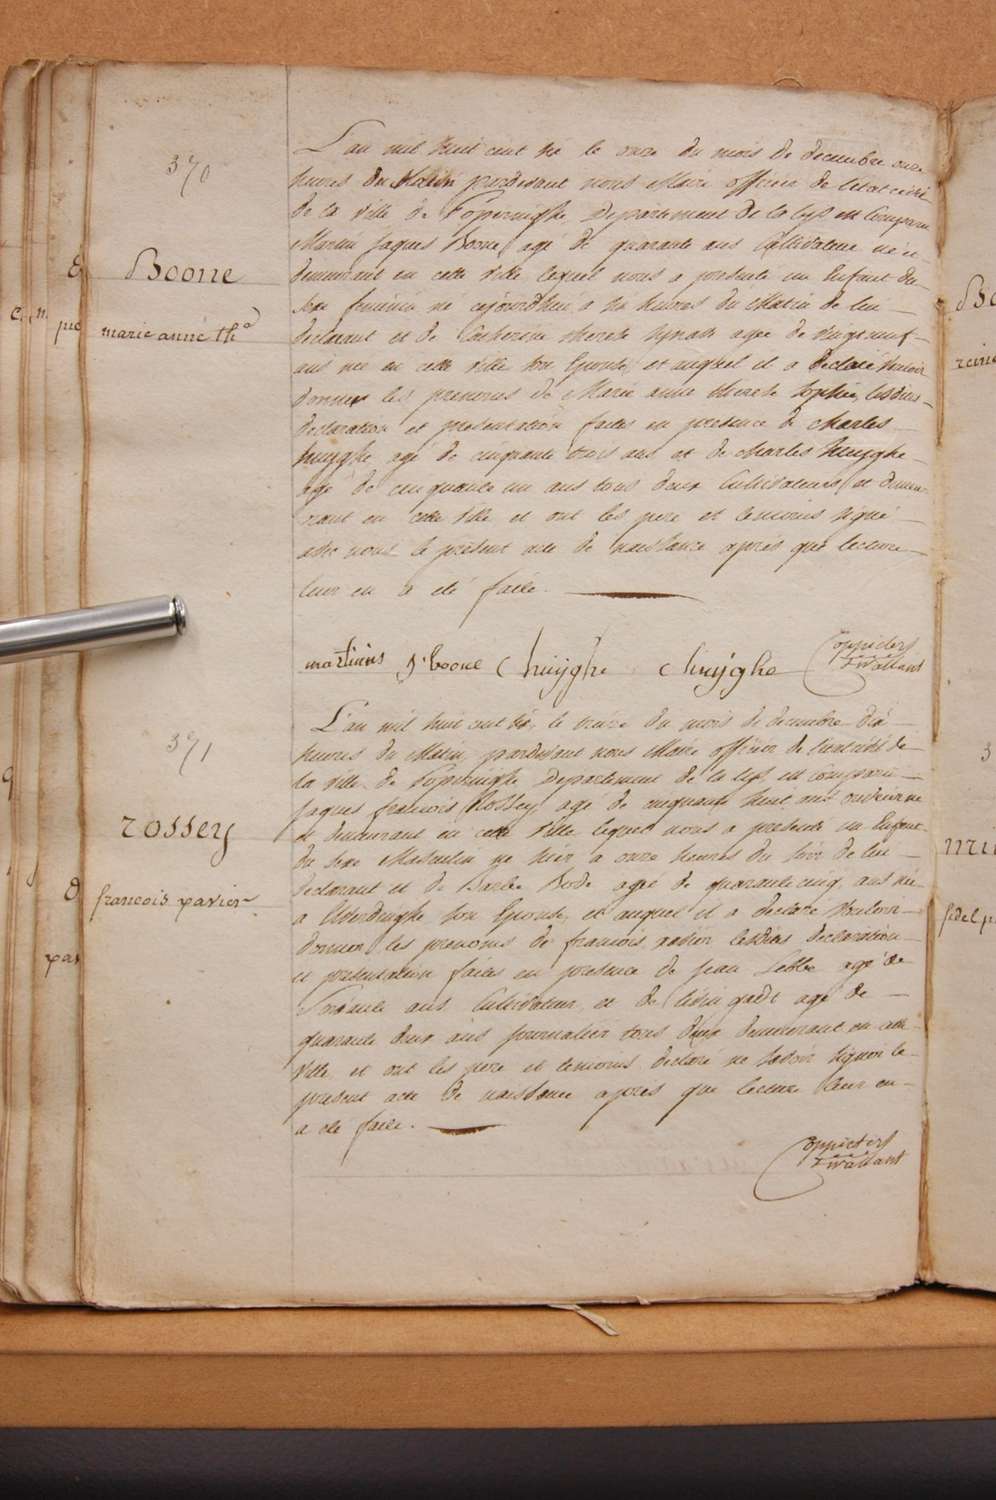 370
Boone
marie anne th^e
L'an mil huit cent dix le onze du mois de decembre onze
heures du Matin pardevant nous Maire officier de l'etat civil
de la ville de Poperinghe Departement de la lys est Comparu
Martin Jaques Boone agé de quarante ans Cultivateur né et
demeurant en cette ville lequel nous a presenté un Enfant du
sexe feminin né cejourdhui a six heures du Matin de lui
declarant et de Catherine therese agée de vingt neuf
ans née en cette ville son Epouse, et auquel il a declaré vouloir
donner les prenoms de Marie anne therese Sophie, lesdites
declaration et presentation faites en presence de Charles
huyghe agé de cinquante trois ans et de Charles huyghe
agé de cinquante un ans tous deux Cultivateurs et demeu-
rant en cette ville et ont les pere et temoins signé
avec nous le présent acte de naissance après que lecture
leur en a été faite.
martinus J: boone C huyghe C huyghe
371
rossey
francois xavier
L'an mil huit cent dix, le treize du mois de decembre dix
heures du Matin, pardevant nous Maire officier de l'etat civil de
la ville de Poperinghe Departement de la lys est comparu
Jaques francois Rossey agé de cinquante huit ans ouvrier né
et demeurant en cette ville lequel nous a presenté un Enfant
du sexe Masculin né hier a onze heures du soir de lui
declarant et de Barbe Bode agée de quarante cinq ans née
a son Epouse, et auquel il a declaré vouloir
donner les prenoms de francois xavier lesdites declaration
et presentation faites en presence de Jean Lebbe agé de
ans Cultivateur et de agé de
quarante deux ans journalier tous deux demeurant en cette
ville et ont les pere et temoins declaré ne savoir signer le
present acte de naissance après que lecture leur en
a été faite.